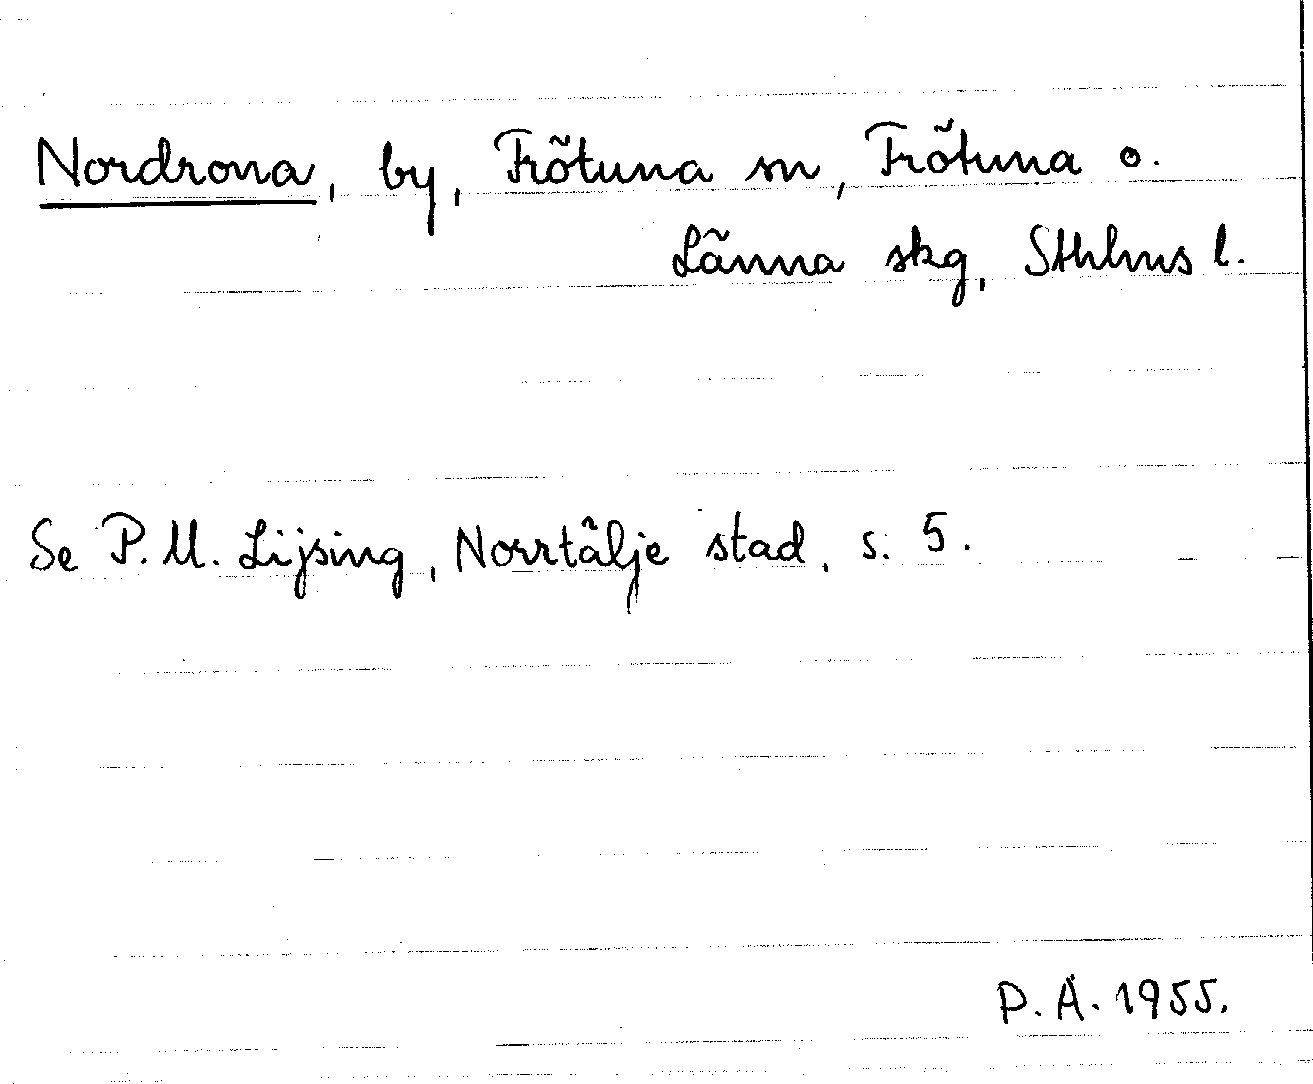 Nordrona, by, Frötuna sn, Frötuna o.
Länna skg, Sthlms l.
Se P. M. Lijsing, Norrtälje stad, s. 5.
P. Ä. 1955.